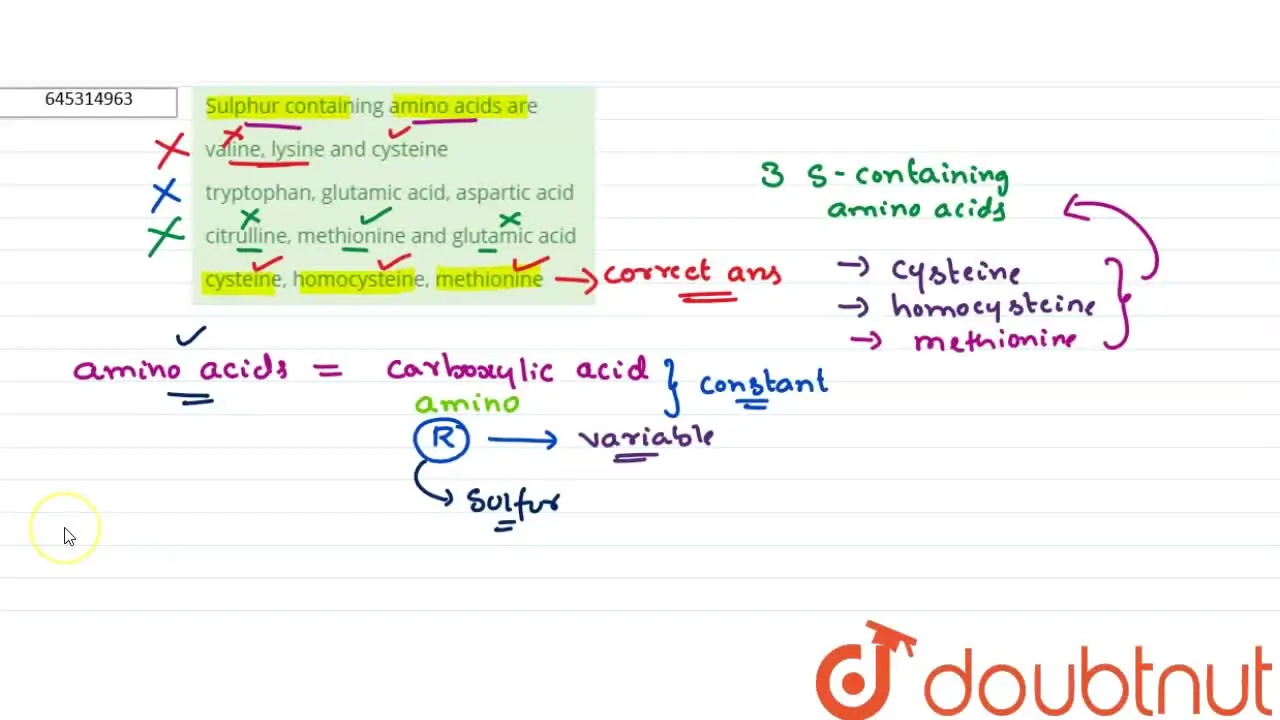 645314963
Sulphur containing amino acids are
valine, lysine and cysteine
tryptophan, glutamic acid, aspartic acid
citrulline, methionine and glutamic acid
cysteine, homocysteine, methionine → correct ans
3 S-containing
amino acids
→ cysteine
→ homocysteine
→ methionine
amino acids = carboxylic acid } constant
amino
R → variable
→ Sulfur
doubtnut